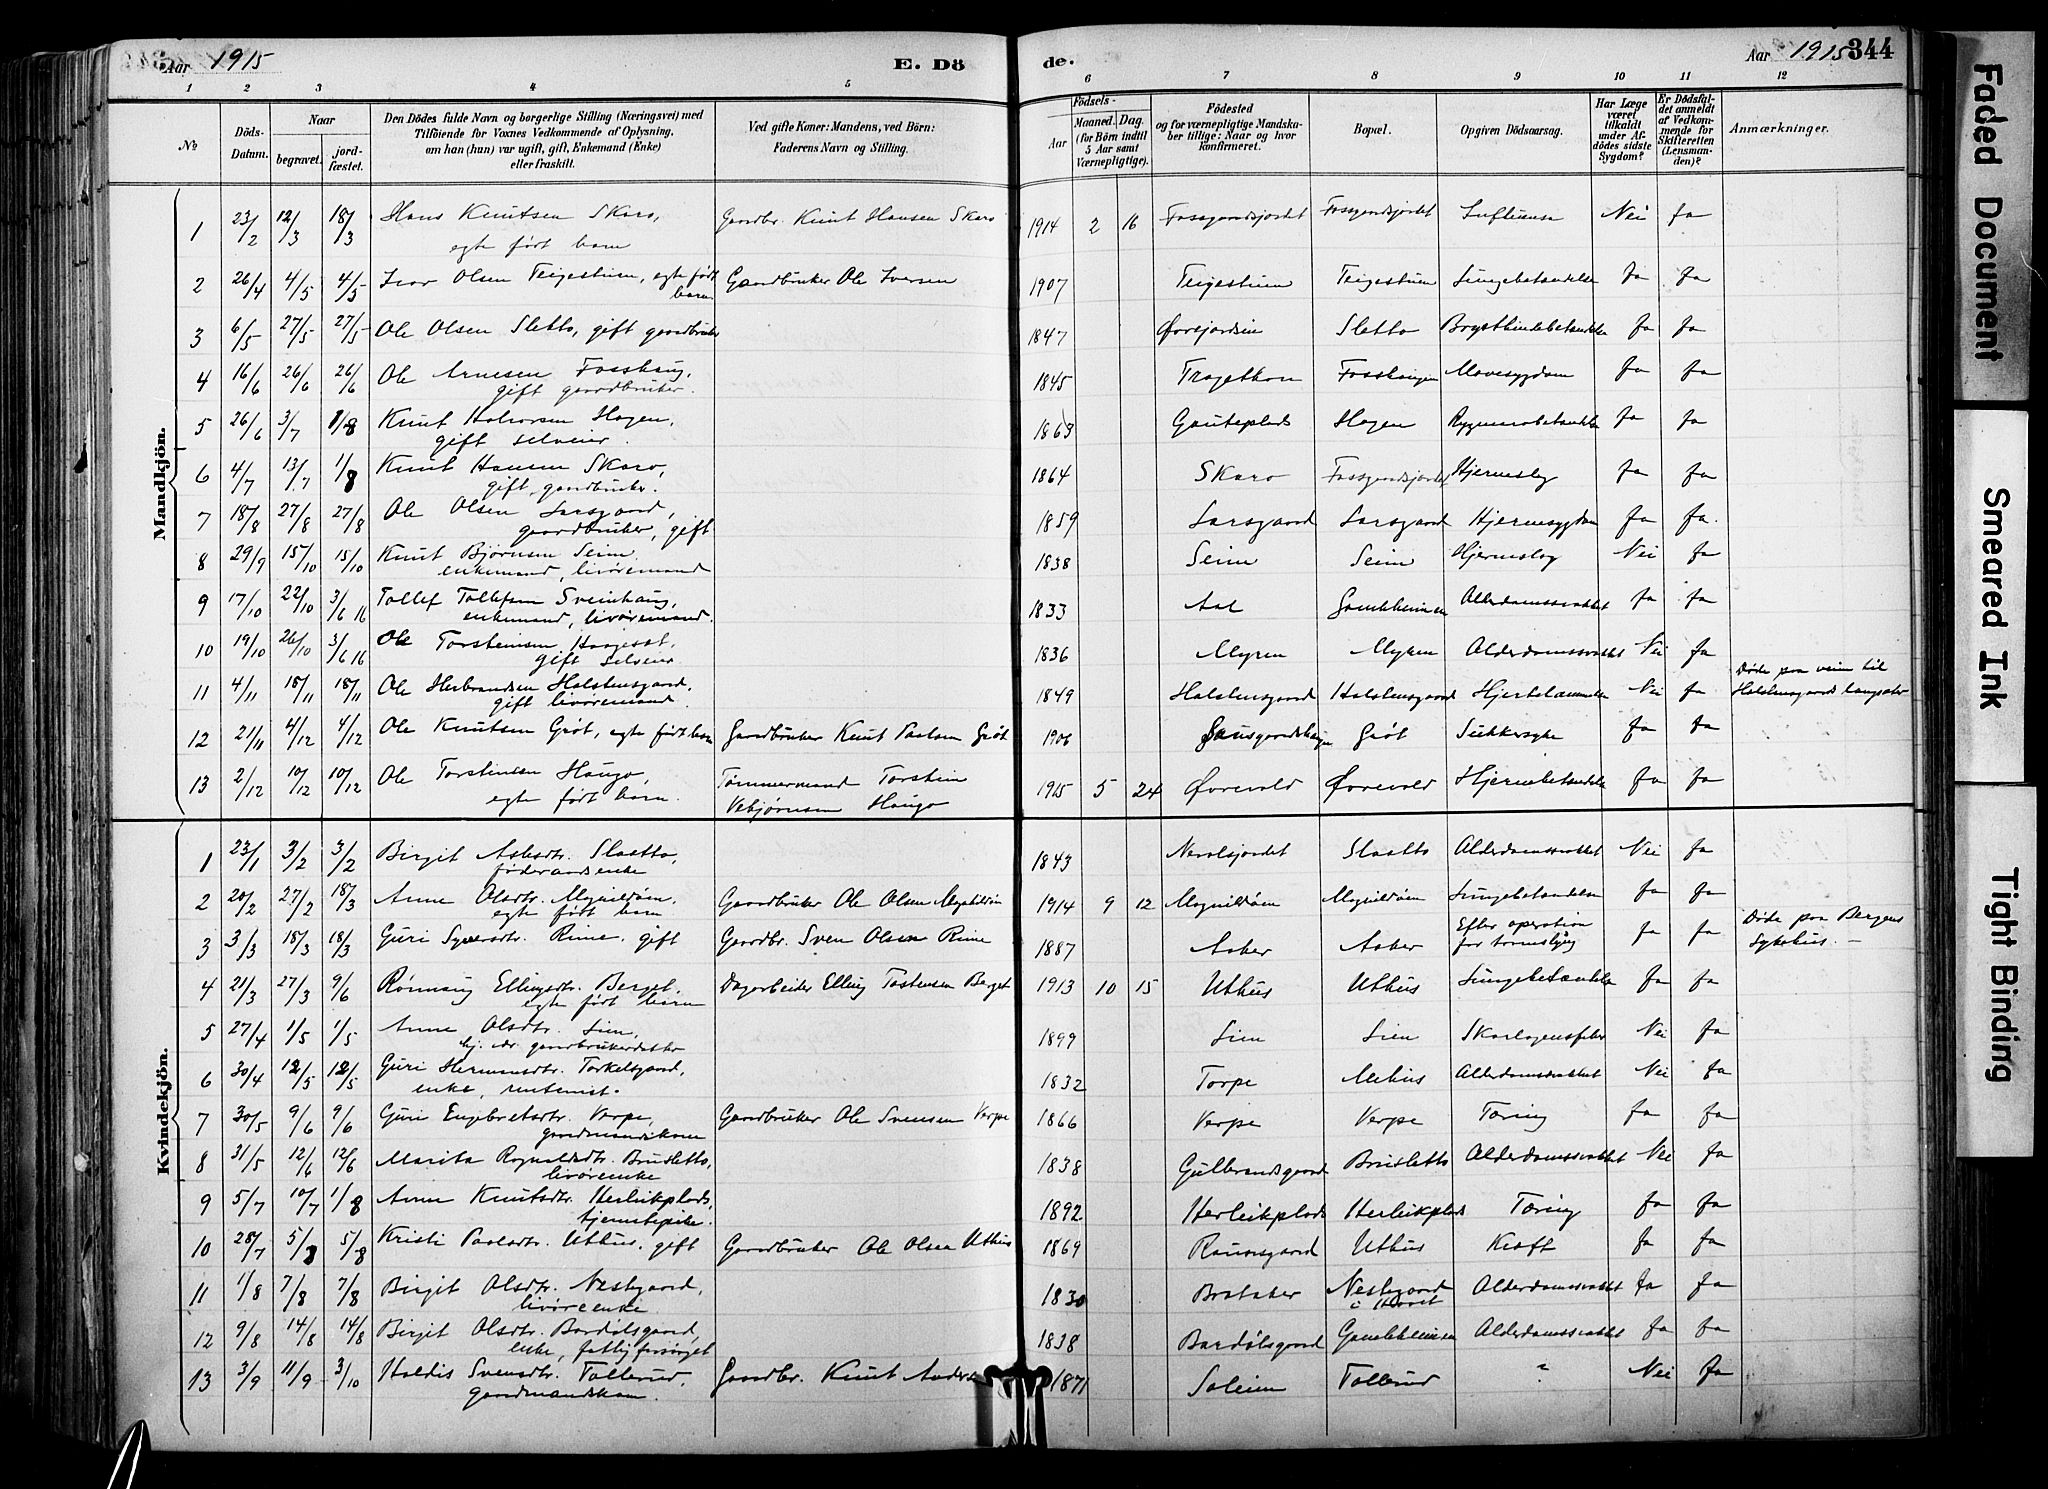 Aar 1915
E. Dö
de.
Aar 1915
344
1 2 3 4 5 6 7 8 9 10 11 12
No
Döds-Datum.
Naar
begravet.
jord-fæstet.
Den Dödes fulde Navn og borgerlige Stilling (Næringsvei) med
Tilföiende for Voxnes Vedkommende af Oplysning,
om han (hun) var ugift, gift, Enkemand (Enke)
eller fraskilt.
Ved gifte Koner: Mandens, ved Börn:
Faderens Navn og Stilling.
Födsels-
Aar
Maaned. Dag.
(for Börn indtil
5 Aar samt
Værnepligtige).
Födested
og for værnepligtige Mandska-
ber tillige: Naar og hvor
konfirmeret.
Bopæl.
Opgiven Dödsaarsag.
Har Læge
været
tilkaldt
under Af-
dödes sidste
Sygdom?
Er Dödsfal-
det anmeldt
af Vedkom-
mende for
Skifteretten
(Lensman-
den)?
Anmærkninger.
Mandkjön.
1 23/2 12/3 18/3 Hans Knutsen Skaro, Gaardbr. Knut Hansen Skaro 1914 2 16 Fossgardsjordet Fossgardsjordet Influensa Nei Ja
egte født barn
2 26/4 4/5 4/5 Ivar Olsen Teigestuen, egte født Gaardbruker Ole Iversen 1907 Teigestuen Teigestuen Lungebetændelse Ja Ja
barn
3 6/5 27/5 27/5 Ole Olsen Sletto, gift gaardbruker 1847 Øvrejordein Sletto Brysthindebetændelse Ja Ja
4 16/6 26/6 26/6 Ole Arnesen Fosshaug, 1845 Tragethon Fosshaugen Mavesygdom Ja Ja
gift gaardbruker.
5 26/6 3/7 1/8 Knut Halvorsen Hagen, 1863 Gauteplads Hagen Rygmarvbetændelse Ja Ja
gift selveier.
6 4/7 13/7 1/8 Knut Hansen Skaro, 1864 Skaro Fossgardsjordet Hjerneslag Ja Ja
gift, gaardbruker.
7 18/8 27/8 27/8 Ole Olsen Larsgaard, 1859 Larsgaard Larsgaard Hjernesygdom Ja Ja.
gaardbruker, gift
8 29/9 15/10 15/10 Knut Bjørnsen Seim 1838 Seim Seim Hjerneslag Nei Ja
enkemand, livøremand
9 17/10 22/10 3/6 16 Tollef Tollefsen Sveinhaug, 1833 Aal Gamleheimen Alderdomssvakhet Ja Ja
enkemand, livøremand.
10 19/10 26/10 3/6 16 Ole Torsteinsen Haugeset, 1836 Myren Myren Alderdomssvakhet Nei Ja
gift selveier
11 4/11 18/11 18/11 Ole Herbrandsen Halstensgaard, 1849 Halstensgaard Halstensgaard Hjertelammelse Nei Ja Døde paa veien til
gift livøremand. Halstensgaards langsæter
12 21/11 4/12 4/12 Ole Knutsen Grøt, egte født barn Gaardbruker Knut Paalsen Grøt 1906 Grøt Sukkersyke Ja Ja
13 2/12 10/12 10/12 Ole Torsteinsen Haugo, Tømmermand Torstein 1915 5 24 Øvrevold Øvrevold Hjernebetændelse Ja Ja
egte født barn. Vebjørnsen Haugo
Kvindekjön.
1 23/1 3/2 3/2 Birgit Aslesdtr. Slaatto, 1843 Nevalsjordet Slaatto Alderdomssvakhet Nei Ja
føderaadsenke
2 20/2 27/2 18/3 Anne Olsdtr. Magnildøin, Gaardbruker Ole Olsen Magnildøin 1914 9 12 Magnildøin Magnildøin Lungebetændelse Ja Ja
egte født barn
3 3/3 18/3 18/3 Guri Syversdtr. Rime, gift Gaardbr. Sven Olsen Rime 1887 Aaker Aaker Efter operation Ja Ja Døde paa Bergens
for tarmslyng Sykehus. —
4 21/3 27/3 9/6 Rønnaug Ellingsdtr. Berget, Dagarbeider Elling Tostensen Berget 1913 10 15 Uthus Uthus Lungebetændelse Ja Ja
egte født barn
5 27/4 1/5 1/5 Anne Olsdtr. Lien, 1899 Lien Lien Skarlagensfeber Nei Ja
hj. vær. gaardbrukerdatter
6 30/4 12/5 12/5 Guri Hermansdtr. Torkelsgaard, 1832 Torpe Mehus Alderdomssvakhet Nei Ja
enke, rentenist.
7 30/5 9/6 9/6 Guri Engebretsdtr. Verpe, Gaardbruker Ole Svensen Verpe 1866 Verpe Verpe Tæring Ja Ja
gaardmandskone
8 31/5 12/6 12/6 Marita Ragnvaldsdtr. Brusletto, 1838 Gulbrandsgaard Brusletto Alderdomssvakhet Nei Ja
livøreenke
9 5/7 10/7 1/8 Anne Knutsdtr. Herleikplads, 1892 Herleikplads Herleikplads Tæring Ja Ja
tjenestepike.
10 28/7 5/8 5/8 Kristi Paalsdtr. Uthus, gift Gaardbruker Ole Olsen Uthus 1869 Uthus Kræft Ja Ja
11 1/8 7/8 7/8 Birgit Olsdtr. Nestegaard, 1830 Brataker Nestegaard Alderdomssvakhet Ja Ja
livøreenke i Hovet
12 9/8 14/8 14/8 Birgit Olsdtr. Bardølsgaard, 1838 Bardølsgaard Gamleheimen Alderdomssvakhet Ja Ja
enke, fattigforsørget
13 3/9 11/9 3/10 Haldis Svensdtr. Tollerud, Gaardbr. Knut Anders 1871 Soleim Tollerud " Nei Ja
gaardmandskone.
Faded Document
Smeared Ink
Tight Binding